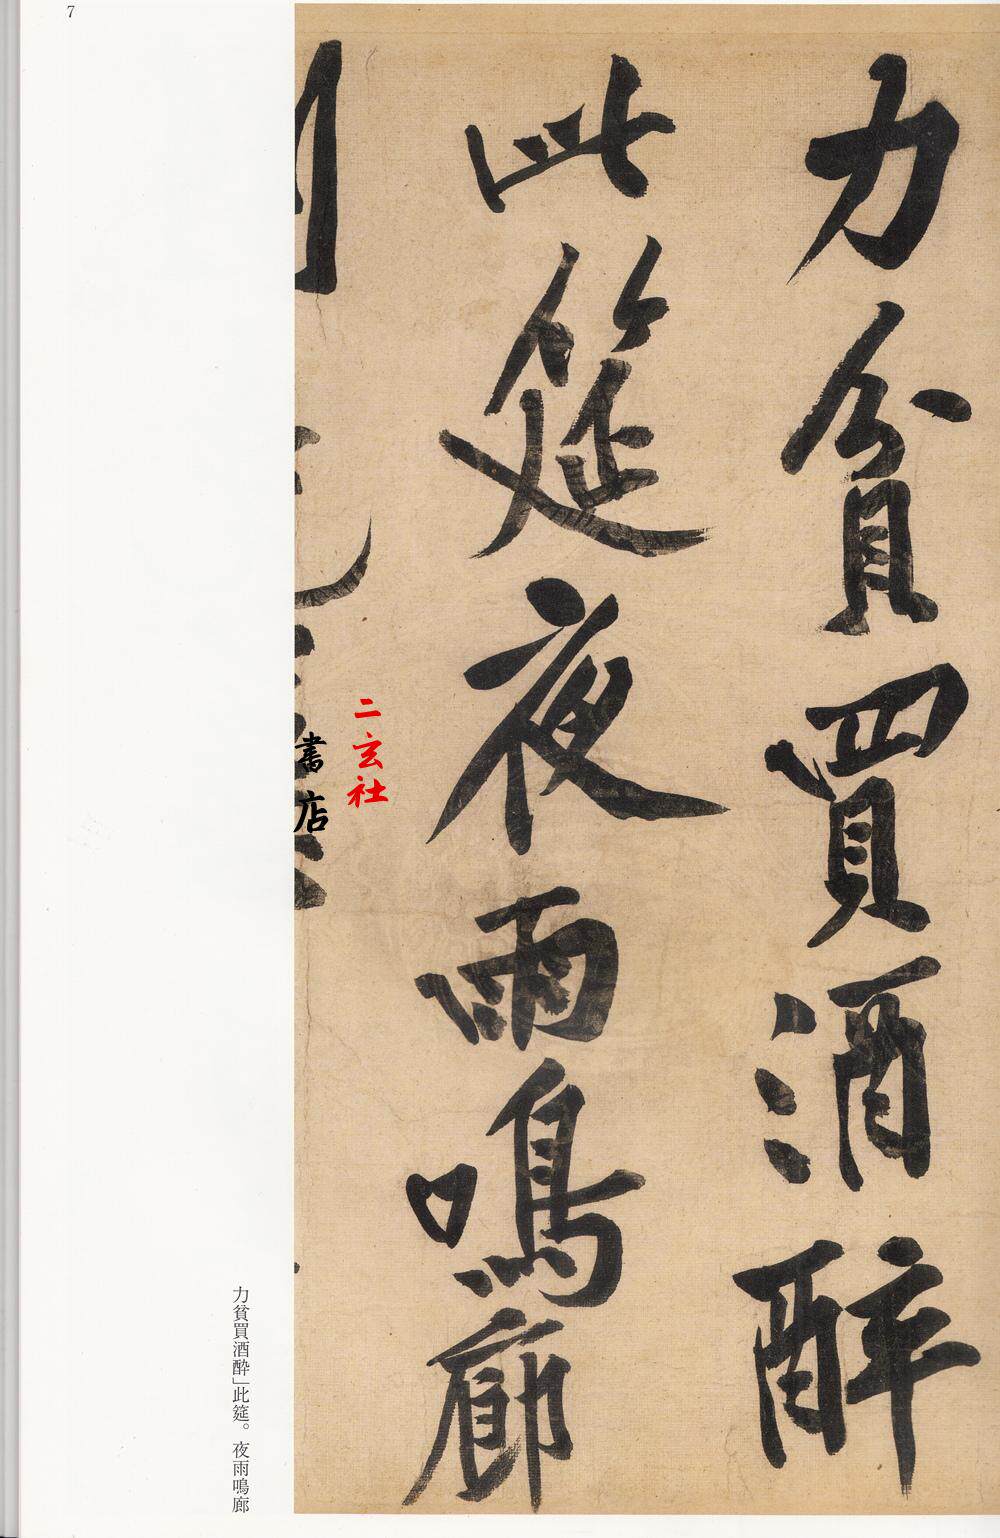 力貧買酒醉
此筵夜雨鳴廊
二玄社
書店
力貧買酒醉」此筵。夜雨鳴廊
7